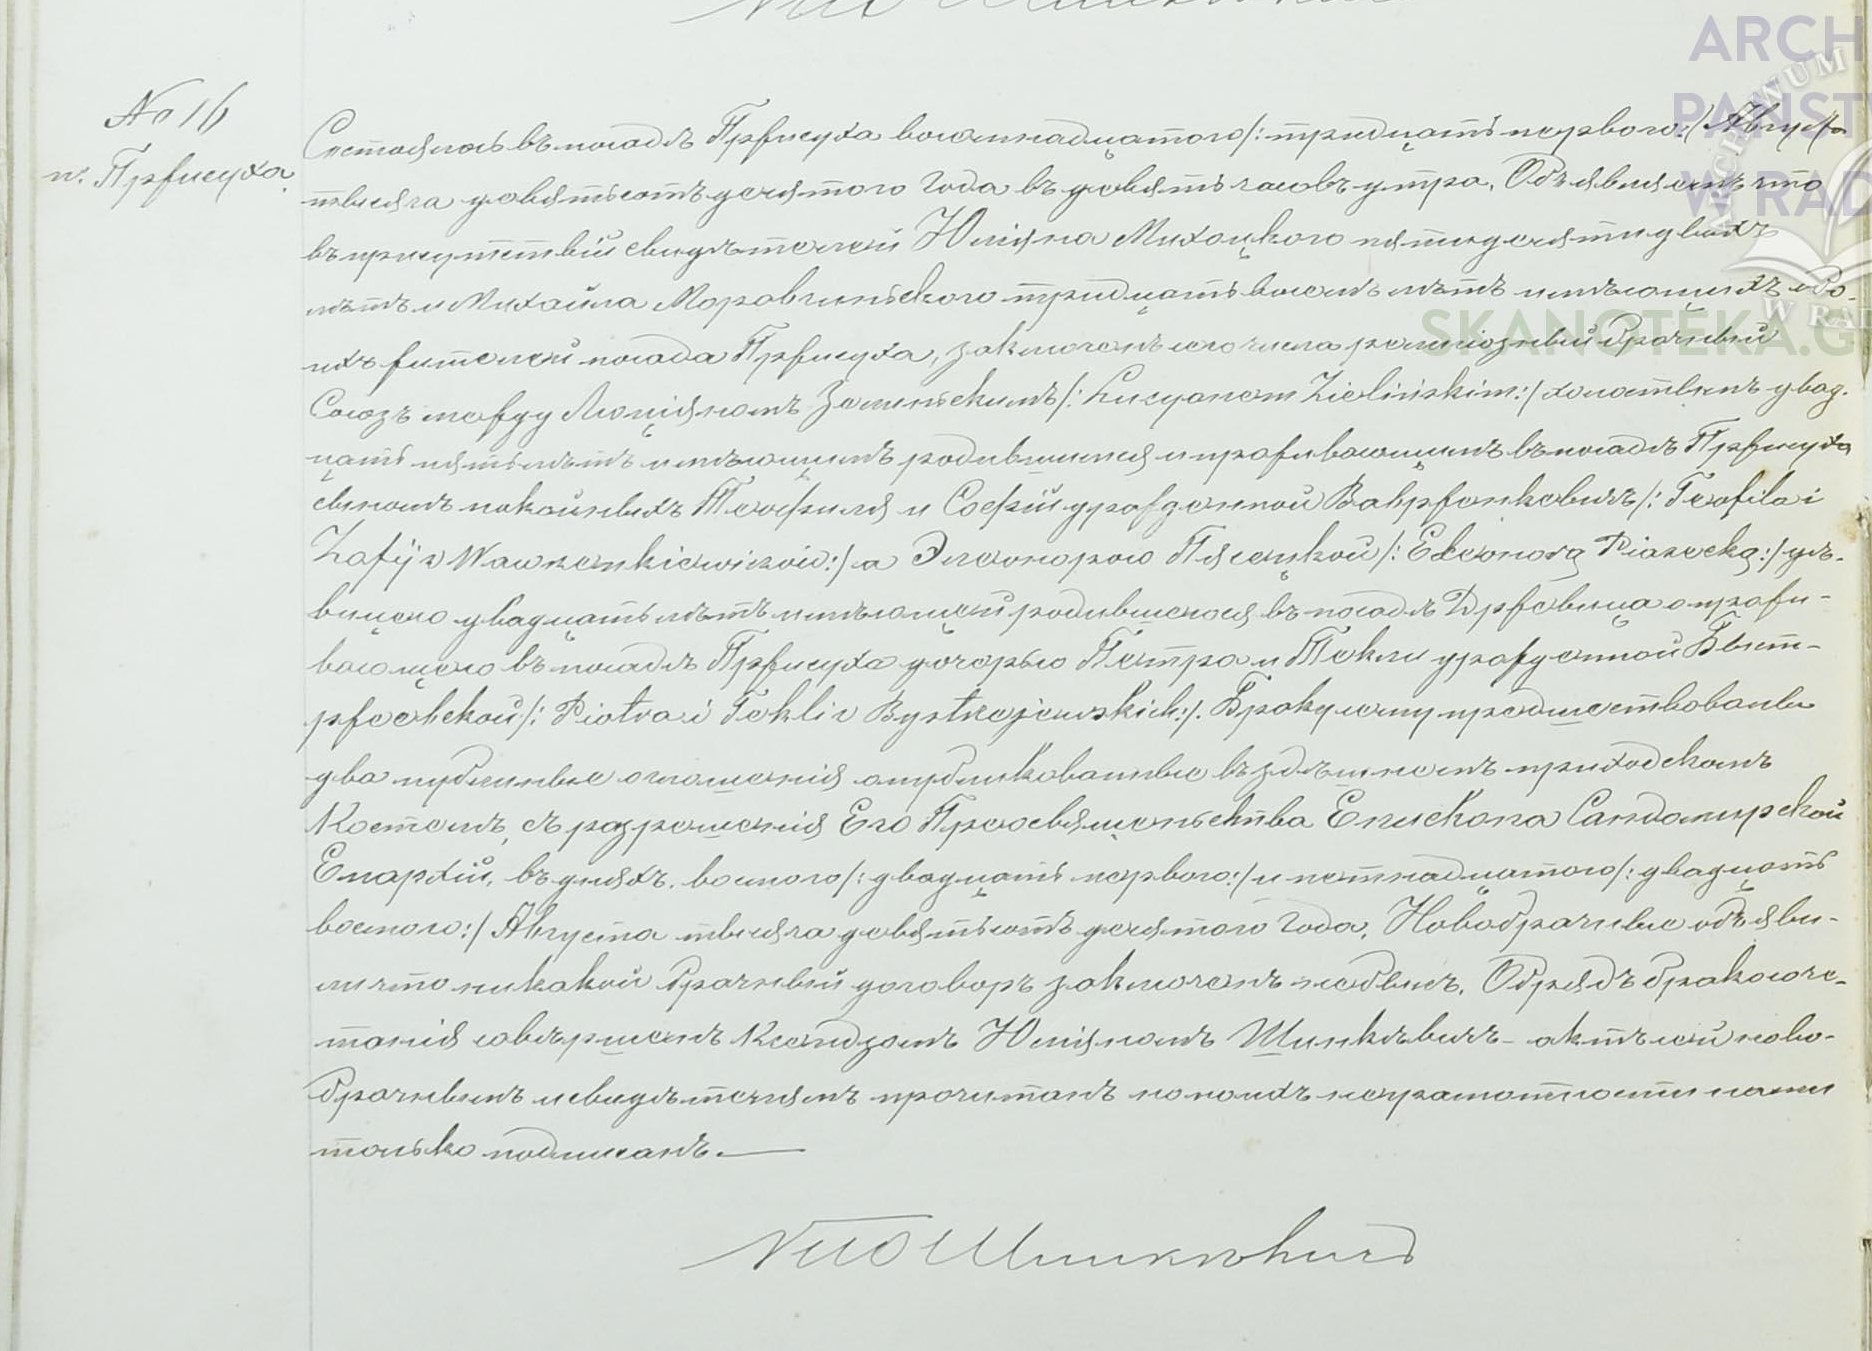 No 16
п. Пржисуха
Состоялось въ посадѣ Пржисуха восемнадцатого /: тридцать первого :/ Августа
тысяча девятьсотъ десятого Года въ девять часовъ утра. Объявляемъ что
въ присутствіи свидѣтелей Юліяна Михоцкого пятидесяти двохъ
лѣтъ и Михаила Моравлиньского тридцать восемь лѣтъ имѣющихъ обо-
ихъ жителей посада Пржисуха, заключенъ сего числа религіозный Брачный
Союзъ между Люціяномъ Зелиньскимъ /: Lucyanem Zielińskim :/ холостымъ двад-
цать пять лѣтъ имѣющимъ родившимся и проживающимъ въ посадѣ Пржисуха
сыномъ покойныхъ Теофиля и Софіи урожденной Вавржонкевичъ /: Teofila i
Zofii z Wawrzenkiewiczów :/ а Элеонорою Пясецкой /: Eleonorą Piasecką :/ дѣ-
вицею двадцать лѣтъ имѣющей родившеюся въ посадѣ Држевица а прожи-
вающею въ посадѣ Пржисуха дочерью Петра и Текли урожденной Быст-
ржеевской /: Piotra i Tekli z Bystrzejewskich :/. Браку сему предшествовали
два публичные оглашенія опубликованные въ здѣшнемъ приходскомъ
Костелѣ, съ разрешенія Его Преосвященьства Епископа Сандомирской
Епархіи, въ дняхъ. восмого /: двадцать первого :/ и петнадцатого /: двадцать
восмого :/ Августа тысяча девятьсотъ десятого Года. Новобрачные объяви-
ли что никакой Брачный договоръ заключенъ небылъ. Обрядъ бракосоче-
танія совѣршенъ Ксендзомъ Юліяномъ Шинкѣвичъ - актъ сей ново-
брачнымъ и свидѣтелямъ прочитанъ по ихъ неграмотности нами
только подписанъ. —
Шинкѣвичъ
ARCH
PAŃST
W RAD
SKANOTEKA.G